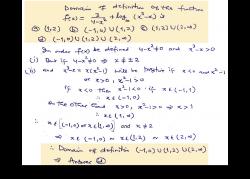 Domain of definition of the function
f(x) = 3/(4-x²) + log₁₀ (x³-x) is
(a) (1,2) (b) (-1,0) ∪ (1,2) (c) (1,2) ∪ (2,∞)
(d) (-1,0) ∪ (1,2) ∪ (2,∞)
In order f(x) be defined 4-x² ≠ 0 and x³-x > 0
(i) But if 4-x² ≠ 0 ⇒ x ≠ ±2
(ii) and x³-x = x(x²-1) will be positive if x<0 and x²-1<0
or x>0, x²-1>0
If x<0 then x²-1<0 if x∈(-1,1)
∴ x∈(-1,0)
On the other hand x>0, x²-1>0 ⇒ x>1
∴ x∈(1,∞)
∴ x∈(-1,0) or x∈(1,∞) and x≠2
⇒ x∈(-1,0) or x∈(1,2) or x∈(2,∞)
∴ Domain of definition (-1,0) ∪ (1,2) ∪ (2,∞)
⇒ Answer (d)